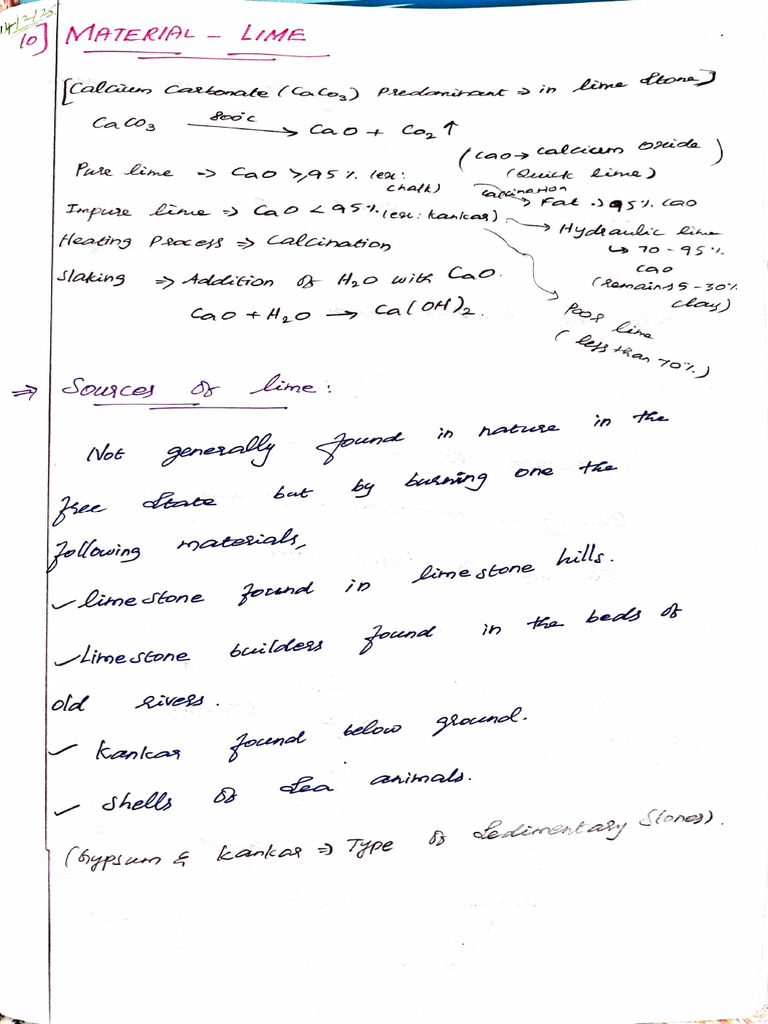 14/2/25
10] MATERIAL - LIME
[Calcium Carbonate (CaCo3) Predominant → in lime stone]
CaCO3 —800°C→ CaO + CO2↑
(CaO → calcium oxide)
(Quick lime)
Pure lime → CaO >, 95% (ex: chalk)
calcination
→ Fat → 95% CaO
Impure lime ⇒ CaO < 95% (ex: kankar)
→ Hydraulic lime
↳ 70 - 95% CaO
(remains 5-30% clay)
Heating Process ⇒ Calcination
Slaking ⇒ Addition of H2O with CaO.
CaO + H2O → Ca(OH)2.
Poor lime
(less than 70%)
⇒ Sources of lime:
Not generally found in nature in the
free state but by burning one the
following materials,
✓ limestone found in limestone hills.
✓ Limestone builders found in the beds of
old rivers.
✓ Kankar found below ground.
✓ Shells of sea animals.
(Gypsum & Kankar ⇒ Type of Sedimentary Stones).